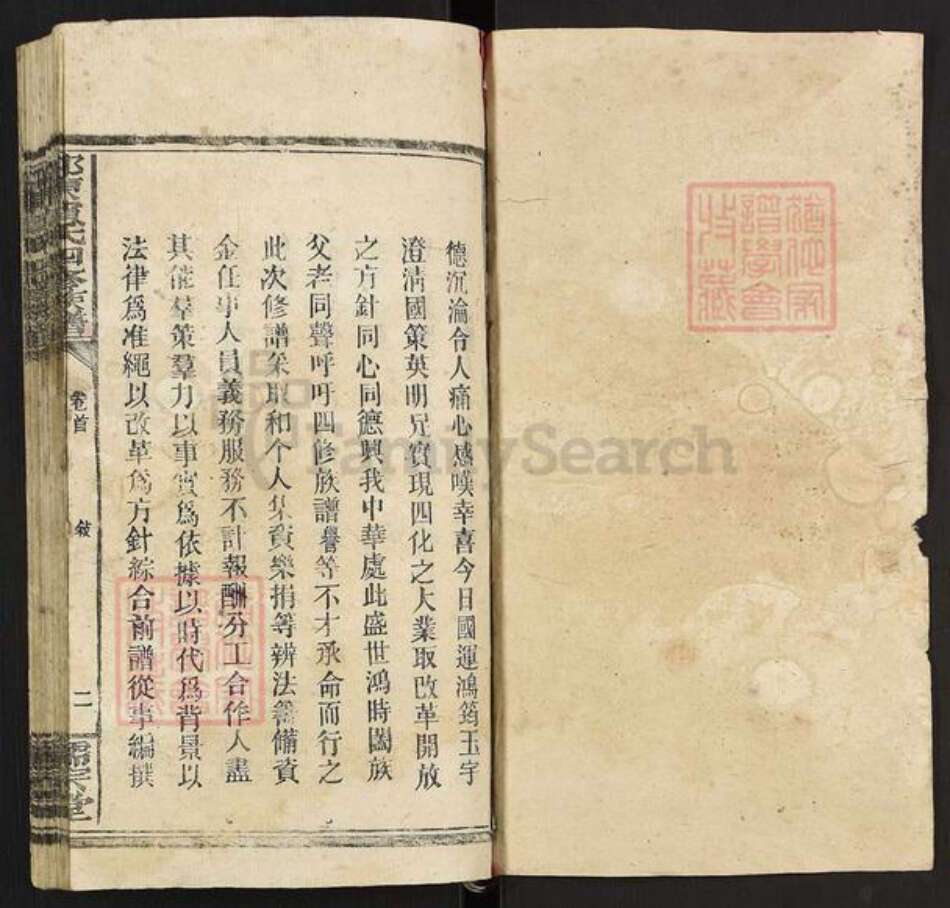 譜學會
收藏
德沉淪令人痛心感嘆幸喜今日國運鴻筠玉宇
澄清國策英明兄實現四化之大業取改革開放
之方針同心同德興我中華處此盛世鴻時闔族
父老同聲呼吁四修族譜譽等不才承命而行之
此次修譜采取和个人集資樂捐等辨法籌備資
金任事人員義務服務不計報酬分工合作人盡
其能羣策羣力以事實爲依據以時代爲背景以
法律爲准繩以改革爲方針綜合前譜從事編撰
氏四修族譜
卷首
敍
二
儒宗堂
FamilySearch